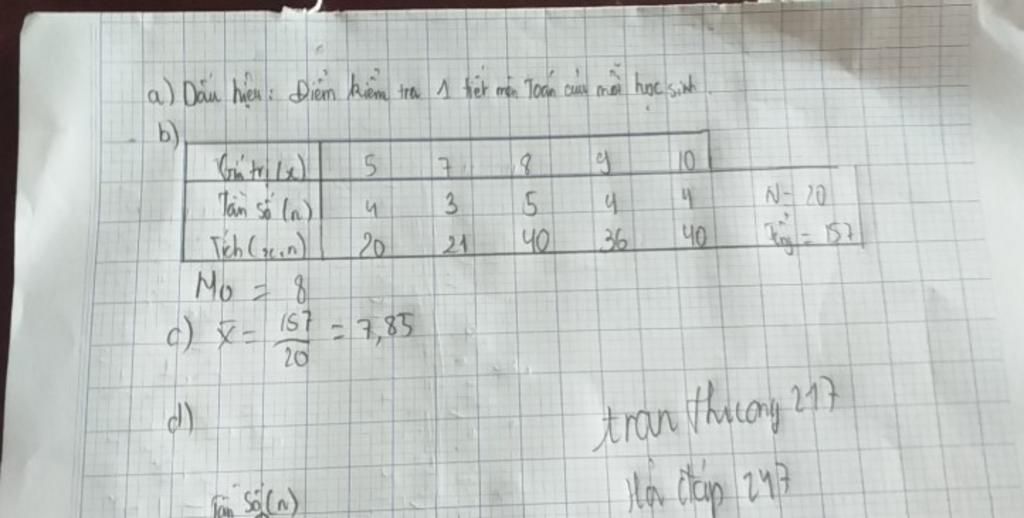 a) Dấu hiệu: Điểm kiểm tra 1 tiết môn Toán của mỗi học sinh.
b)
Giá trị (x) 5 7 8 9 10
Tần số (n) 4 3 5 4 4 N = 20
Tích (x.n) 20 21 40 36 40 Tổng = 157
Mo = 8
c) X̄ = 157/20 = 7,85
d)
tran thuong 217
Hỏi đáp 247
Tần số (n)